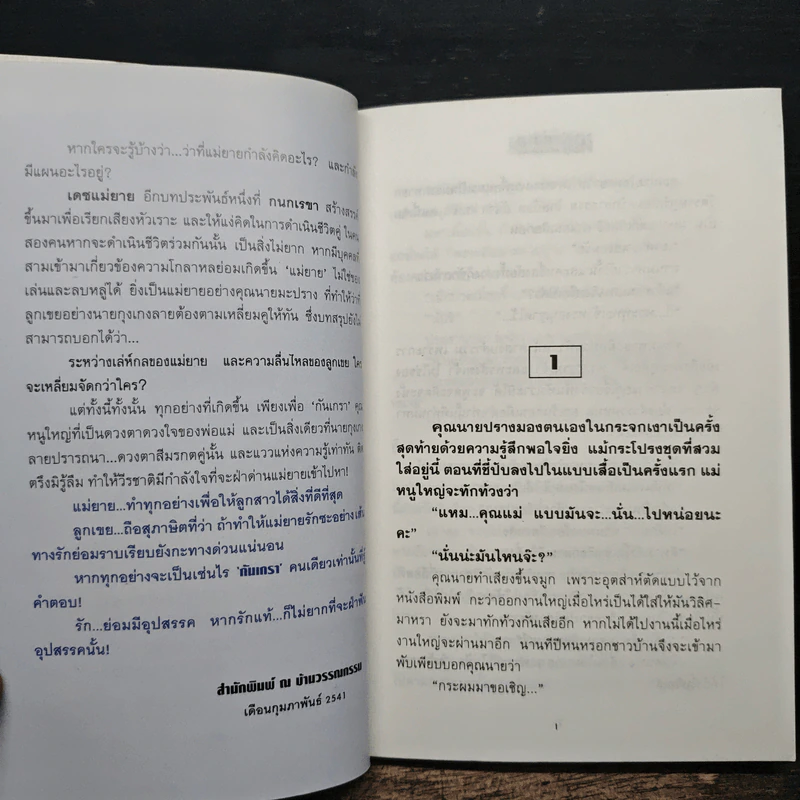 หากใครจะรู้บ้างว่า...ว่าที่แม่ยายกำลังคิดอะไร? และกำลัง
มีแผนอะไรอยู่?
เดชแม่ยาย อีกบทประพันธ์หนึ่งที่ กนกเรขา สร้างสรรค์
ขึ้นมาเพื่อเรียกเสียงหัวเราะ และให้แง่คิดในการดำเนินชีวิตคู่ ในคน
สองคนหากจะดำเนินชีวิตร่วมกันนั้น เป็นสิ่งไม่ยาก หากมีบุคคลที่
สามเข้ามาเกี่ยวข้องความโกลาหลย่อมเกิดขึ้น ‘แม่ยาย’ ไม่ใช่ของ
เล่นและลบหลู่ได้ ยิ่งเป็นแม่ยายอย่างคุณนายมะปราง ที่ทำให้ว่าที่
ลูกเขยอย่างนายกุงเกงลายต้องตามเหลี่ยมคูให้ทัน ซึ่งบทสรุปยังไม่
สามารถบอกได้ว่า...
ระหว่างเล่ห์กลของแม่ยาย และความลื่นไหลของลูกเขย ใคร
จะเหลี่ยมจัดกว่าใคร?
แต่ทั้งนี้ทั้งนั้น ทุกอย่างที่เกิดขึ้น เพียงเพื่อ ‘กันเกรา’ คุณ
หนูใหญ่ที่เป็นดวงตาดวงใจของพ่อแม่ และเป็นสิ่งเดียวที่นายกุงเกง
ลายปรารถนา...ดวงตาสีมรกตคู่นั้น และแววแห่งความรู้เท่าทัน ติด
ตรึงมิรู้ลืม ทำให้วีรชาติมีกำลังใจที่จะฝ่าด่านแม่ยายเข้าไปหา!
แม่ยาย...ทำทุกอย่างเพื่อให้ลูกสาวได้สิ่งที่ดีที่สุด
ลูกเขย...ถือสุภาษิตที่ว่า ถ้าทำให้แม่ยายรักซะอย่างเส้น
ทางรักย่อมราบเรียบยังกะทางด่วนแน่นอน
หากทุกอย่างจะเป็นเช่นไร ‘กันเกรา’ คนเดียวเท่านั้นที่รู้
คำตอบ!
รัก...ย่อมมีอุปสรรค หากรักแท้...ก็ไม่ยากที่จะฝ่าฟัน
อุปสรรคนั้น!
สำนักพิมพ์ ณ บ้านวรรณกรรม
เดือนกุมภาพันธ์ 2541
1
คุณนายปรางมองตนเองในกระจกเงาเป็นครั้ง
สุดท้ายด้วยความรู้สึกพอใจยิ่ง แม้กระโปรงชุดที่สวม
ใส่อยู่นี้ ตอนที่ชี้ปับลงไปในแบบเสื้อเป็นครั้งแรก แม่
หนูใหญ่จะทักท้วงว่า
“แหม...คุณแม่ แบบมันจะ...นั่น...ไปหน่อยนะ
คะ”
“นั่นน่ะมันไหนจ๊ะ?”
คุณนายทำเสียงขึ้นจมูก เพราะอุตส่าห์ตัดแบบไว้จาก
หนังสือพิมพ์ กะว่าออกงานใหญ่เมื่อไหร่เป็นได้ใส่ให้มันวิลิศ-
มาหรา ยังจะมาทักท้วงกันเสียอีก หากไม่ได้ไปงานนี้เมื่อไหร่
งานใหญ่จะผ่านมาอีก นานทีปีหนหรอกชาวบ้านจึงจะเข้ามา
พับเพียบบอกคุณนายว่า
“กระผมมาขอเชิญ...”
1